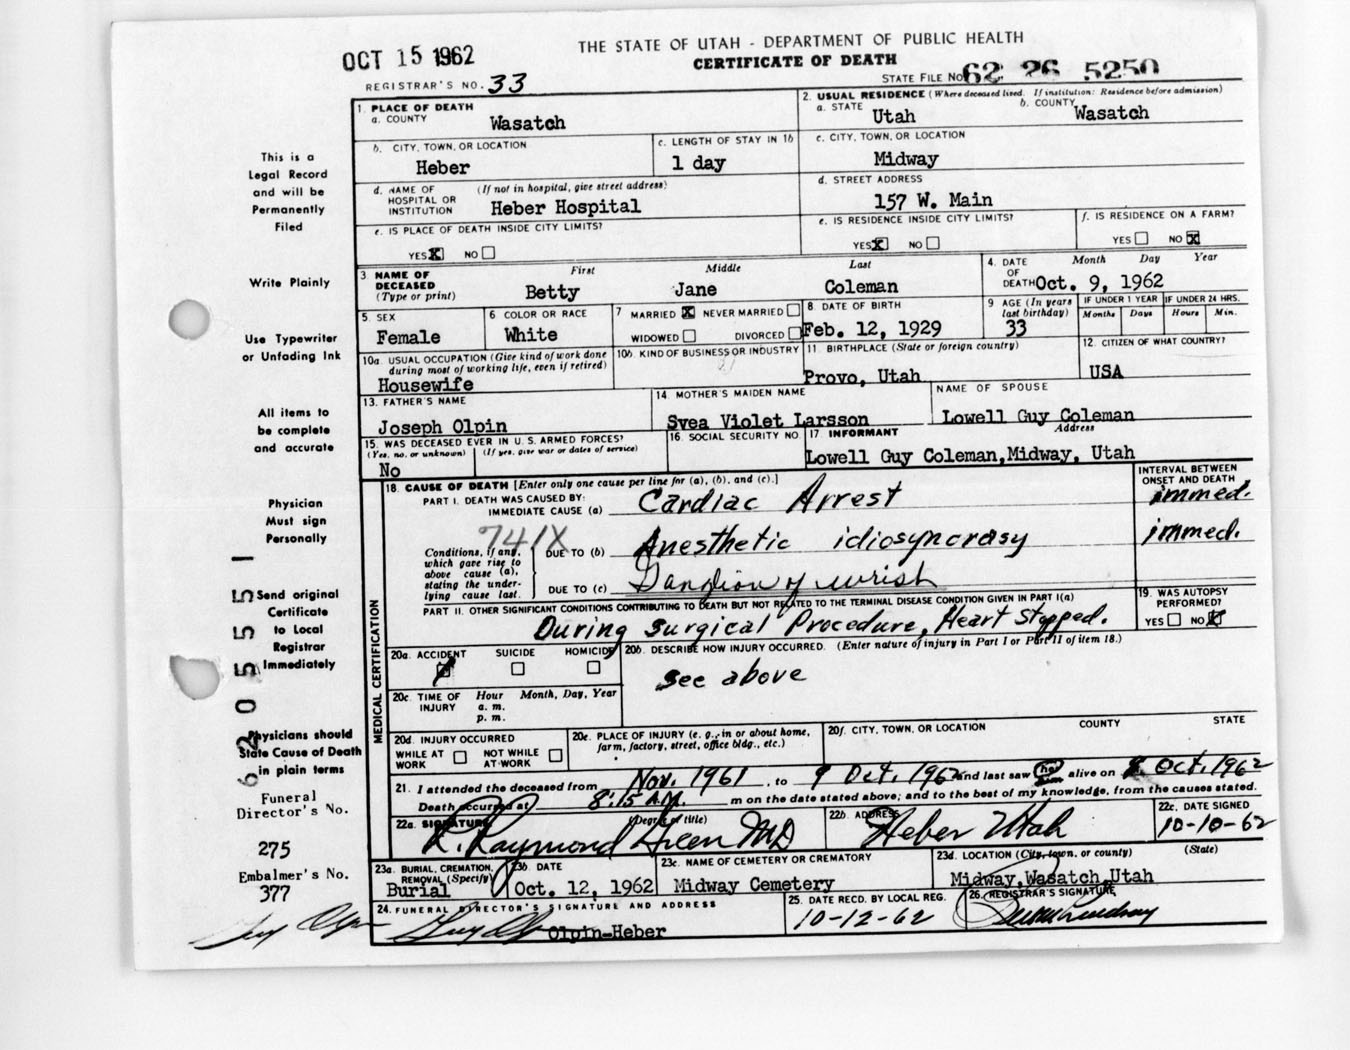 OCT 15 1962
THE STATE OF UTAH - DEPARTMENT OF PUBLIC HEALTH
CERTIFICATE OF DEATH
REGISTRAR'S NO. 33
STATE FILE NO. 62 26 5250
1. PLACE OF DEATH
a. COUNTY
Wasatch
2. USUAL RESIDENCE (Where deceased lived. If institution: Residence before admission)
a. STATE
Utah
b. COUNTY
Wasatch
b. CITY, TOWN, OR LOCATION
Heber
c. LENGTH OF STAY IN 1b
1 day
c. CITY, TOWN, OR LOCATION
Midway
d. NAME OF HOSPITAL OR INSTITUTION
(If not in hospital, give street address)
Heber Hospital
d. STREET ADDRESS
157 W. Main
e. IS PLACE OF DEATH INSIDE CITY LIMITS?
YES X NO
e. IS RESIDENCE INSIDE CITY LIMITS?
YES X NO
f. IS RESIDENCE ON A FARM?
YES NO X
3 NAME OF DECEASED
(Type or print)
First Middle Last
Betty Jane Coleman
4. DATE OF DEATH
Month Day Year
Oct. 9, 1962
5. SEX
Female
6 COLOR OR RACE
White
7 MARRIED X NEVER MARRIED
WIDOWED DIVORCED
8 DATE OF BIRTH
Feb. 12, 1929
9 AGE (In years last birthday)
33
IF UNDER 1 YEAR
Months Days
IF UNDER 24 HRS.
Hours Min.
10a. USUAL OCCUPATION (Give kind of work done during most of working life, even if retired)
Housewife
10b. KIND OF BUSINESS OR INDUSTRY
11. BIRTHPLACE (State or foreign country)
Provo, Utah
12. CITIZEN OF WHAT COUNTRY?
USA
13. FATHER'S NAME
Joseph Olpin
14. MOTHER'S MAIDEN NAME
Svea Violet Larsson
NAME OF SPOUSE
Lowell Guy Coleman
15. WAS DECEASED EVER IN U.S. ARMED FORCES?
(Yes, no, or unknown) (If yes, give war or dates of service)
No
16. SOCIAL SECURITY NO.
17. INFORMANT Address
Lowell Guy Coleman, Midway, Utah
18. CAUSE OF DEATH [Enter only one cause per line for (a), (b), and (c).]
INTERVAL BETWEEN ONSET AND DEATH
PART I. DEATH WAS CAUSED BY:
IMMEDIATE CAUSE (a) Cardiac Arrest immed.
741X
Conditions, if any, which gave rise to above cause (a), stating the underlying cause last.
DUE TO (b) Anesthetic idiosyncrasy immed.
DUE TO (c) Ganglion of wrist
PART II. OTHER SIGNIFICANT CONDITIONS CONTRIBUTING TO DEATH BUT NOT RELATED TO THE TERMINAL DISEASE CONDITION GIVEN IN PART I(a)
During Surgical Procedure, Heart Stopped.
19. WAS AUTOPSY PERFORMED?
YES NO X
20a. ACCIDENT SUICIDE HOMICIDE
20b. DESCRIBE HOW INJURY OCCURRED. (Enter nature of injury in Part I or Part II of item 18.)
see above
20c. TIME OF INJURY Hour Month, Day, Year
a. m.
p. m.
20d. INJURY OCCURRED
WHILE AT WORK NOT WHILE AT WORK
20e. PLACE OF INJURY (e. g., in or about home, farm, factory, street, office bldg., etc.)
20f. CITY, TOWN, OR LOCATION COUNTY STATE
21. I attended the deceased from Nov. 1961, to 9 Oct. 1962 and last saw her him alive on 9 Oct. 1962
Death occurred at 8:15 A.M. m on the date stated above; and to the best of my knowledge, from the causes stated.
22a. SIGNATURE (Degree or title)
R. Raymond Green MD
22b. ADDRESS
Heber Utah
22c. DATE SIGNED
10-10-62
23a. BURIAL, CREMATION, REMOVAL (Specify)
Burial
23b. DATE
Oct. 12, 1962
23c. NAME OF CEMETERY OR CREMATORY
Midway Cemetery
23d. LOCATION (City, town, or county) (State)
Midway, Wasatch, Utah
24. FUNERAL DIRECTOR'S SIGNATURE AND ADDRESS
Olpin-Heber
25. DATE RECD. BY LOCAL REG.
10-12-62
26. REGISTRAR'S SIGNATURE
MEDICAL CERTIFICATION
This is a
Legal Record
and will be
Permanently
Filed
Write Plainly
Use Typewriter
or Unfading Ink
All items to
be complete
and accurate
Physician
Must sign
Personally
Send original
Certificate
to Local
Registrar
Immediately
Physicians should
State Cause of Death
in plain terms
Funeral
Director's No.
275
Embalmer's No.
377
Guy Olpin